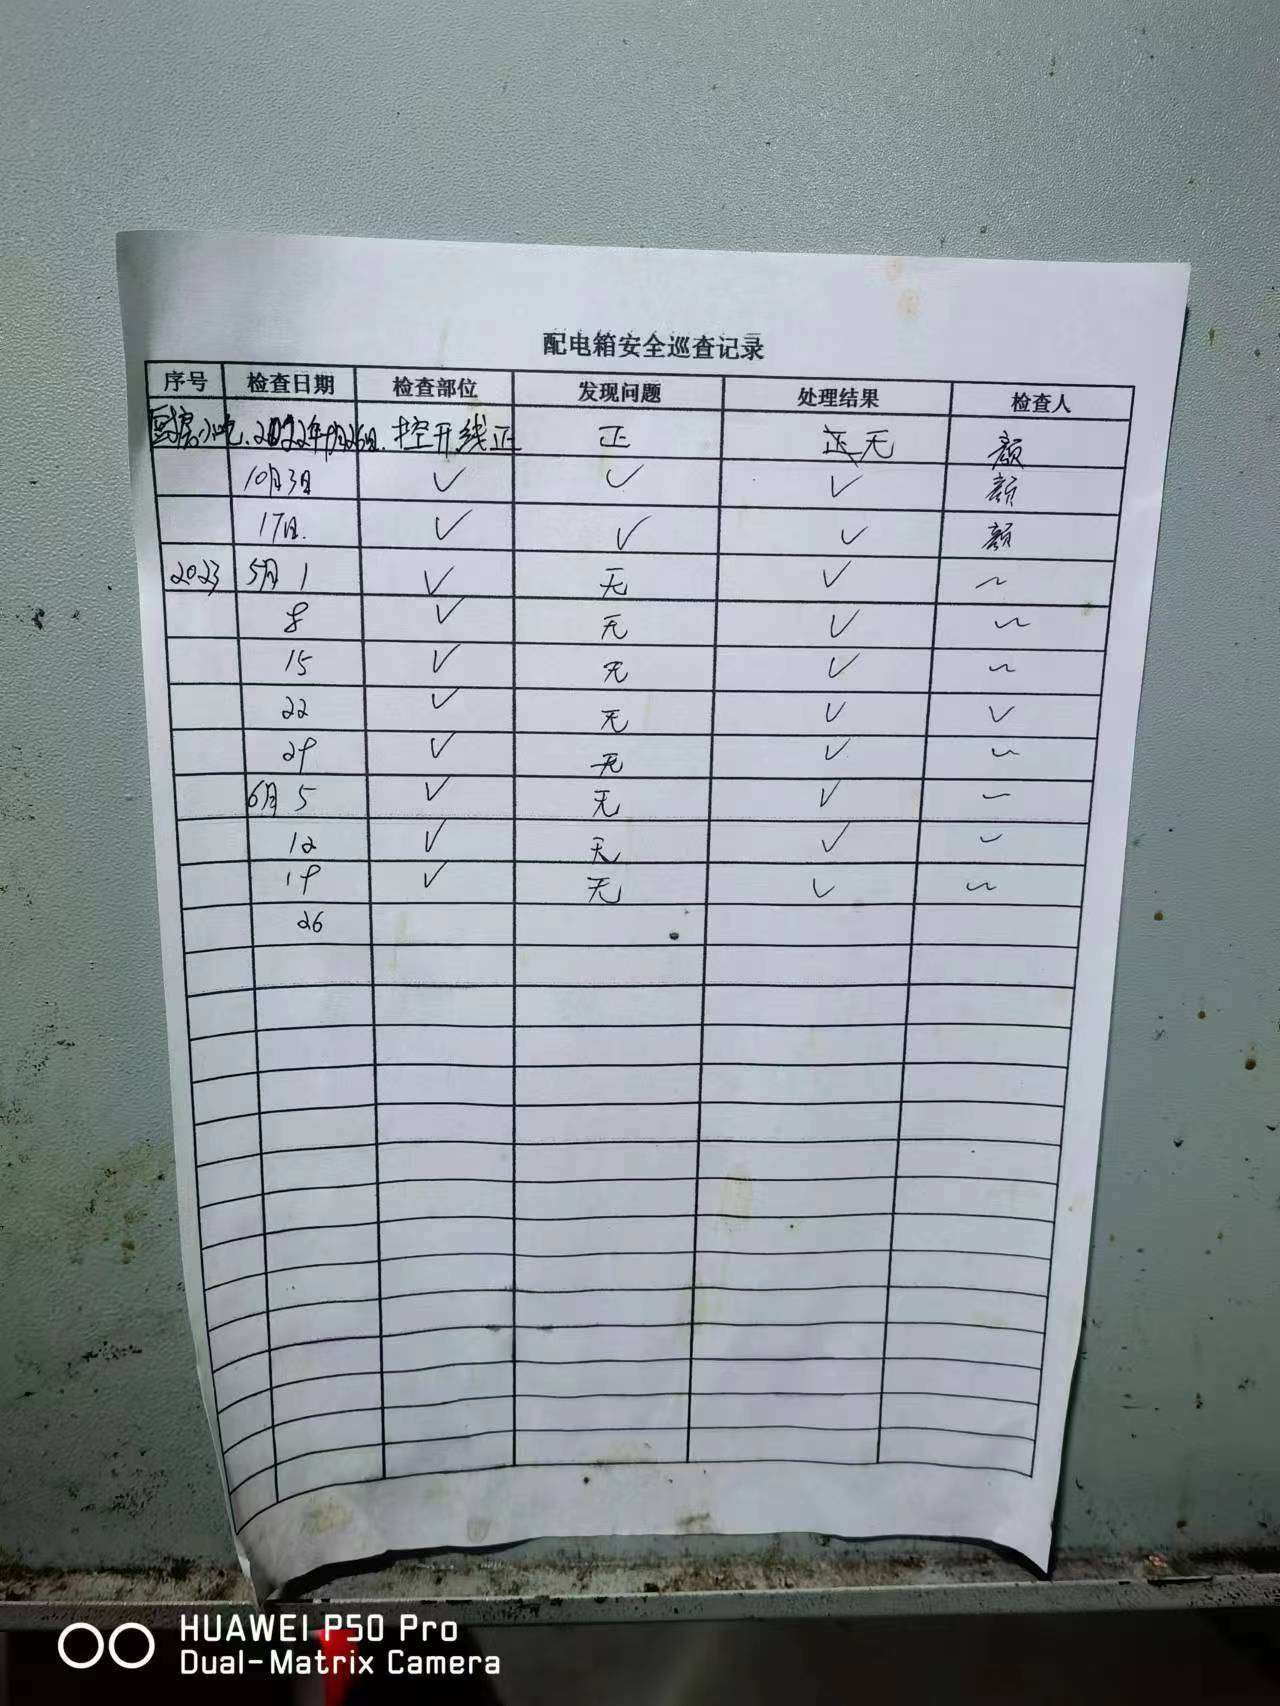 配电箱安全巡查记录
序号 检查日期 检查部位 发现问题 处理结果 检查人
厨房小吃. 2022年9月26日. 控开线正 正 无 颜
10月3日 ✓ ✓ ✓ 颜
17日. ✓ ✓ ✓ 颜
2023 5月 1 ✓ 无 ✓ ~
8 ✓ 无 ✓ ~
15 ✓ 无 ✓ ~
22 ✓ 无 ✓ ✓
29 ✓ 无 ✓ ~
6月 5 ✓ 无 ✓ ~
12 ✓ 无 ✓ ~
19 ✓ 无 ✓ ~
26
HUAWEI P50 Pro
Dual-Matrix Camera